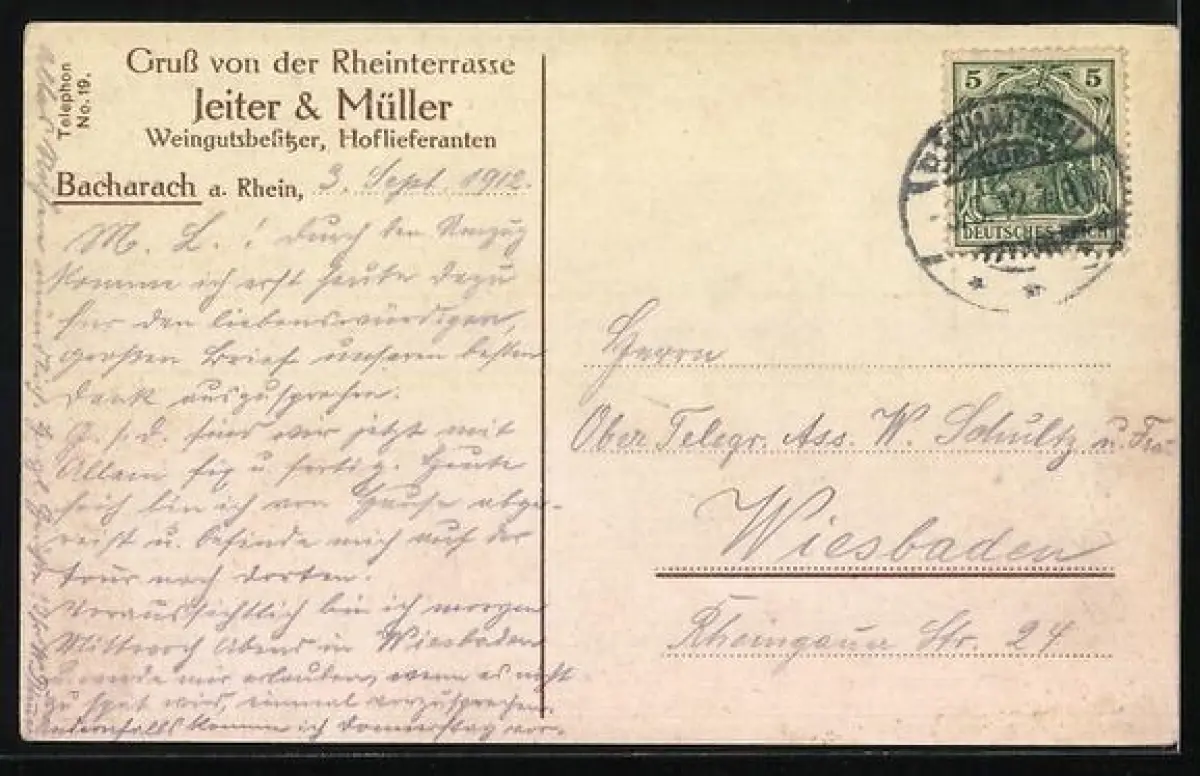 Telephon
No. 19.
Gruß von der Rheinterrasse
Jeiter & Müller
Weingutsbesitzer, Hoflieferanten
Bacharach a. Rhein, 3. Sept. 1912.
M. L.! Durch den Umzug
komme ich erst heute dazu
für den liebenswürdigen,
großen Brief unseren besten
Dank auszusprechen.
G. s. d. sind wir jetzt mit
Allem fix u. fertig. Heute
früh bin ich von Hause abge-
reist u. befinde mich auf der
Tour nach dorten.
Voraussichtlich bin ich morgen
Mittwoch Abend in Wiesbaden
u. werde mir erlauben, wenn es nicht
zu spät wird, einmal vorzusprechen.
Andernfalls komme ich Donnerstag vor-
5 5
BACHARACH
DEUTSCHES REICH
Herrn
Ober Telegr. Ass. W. Schultz u. Fra
Wiesbaden
Rheingauer Str. 24